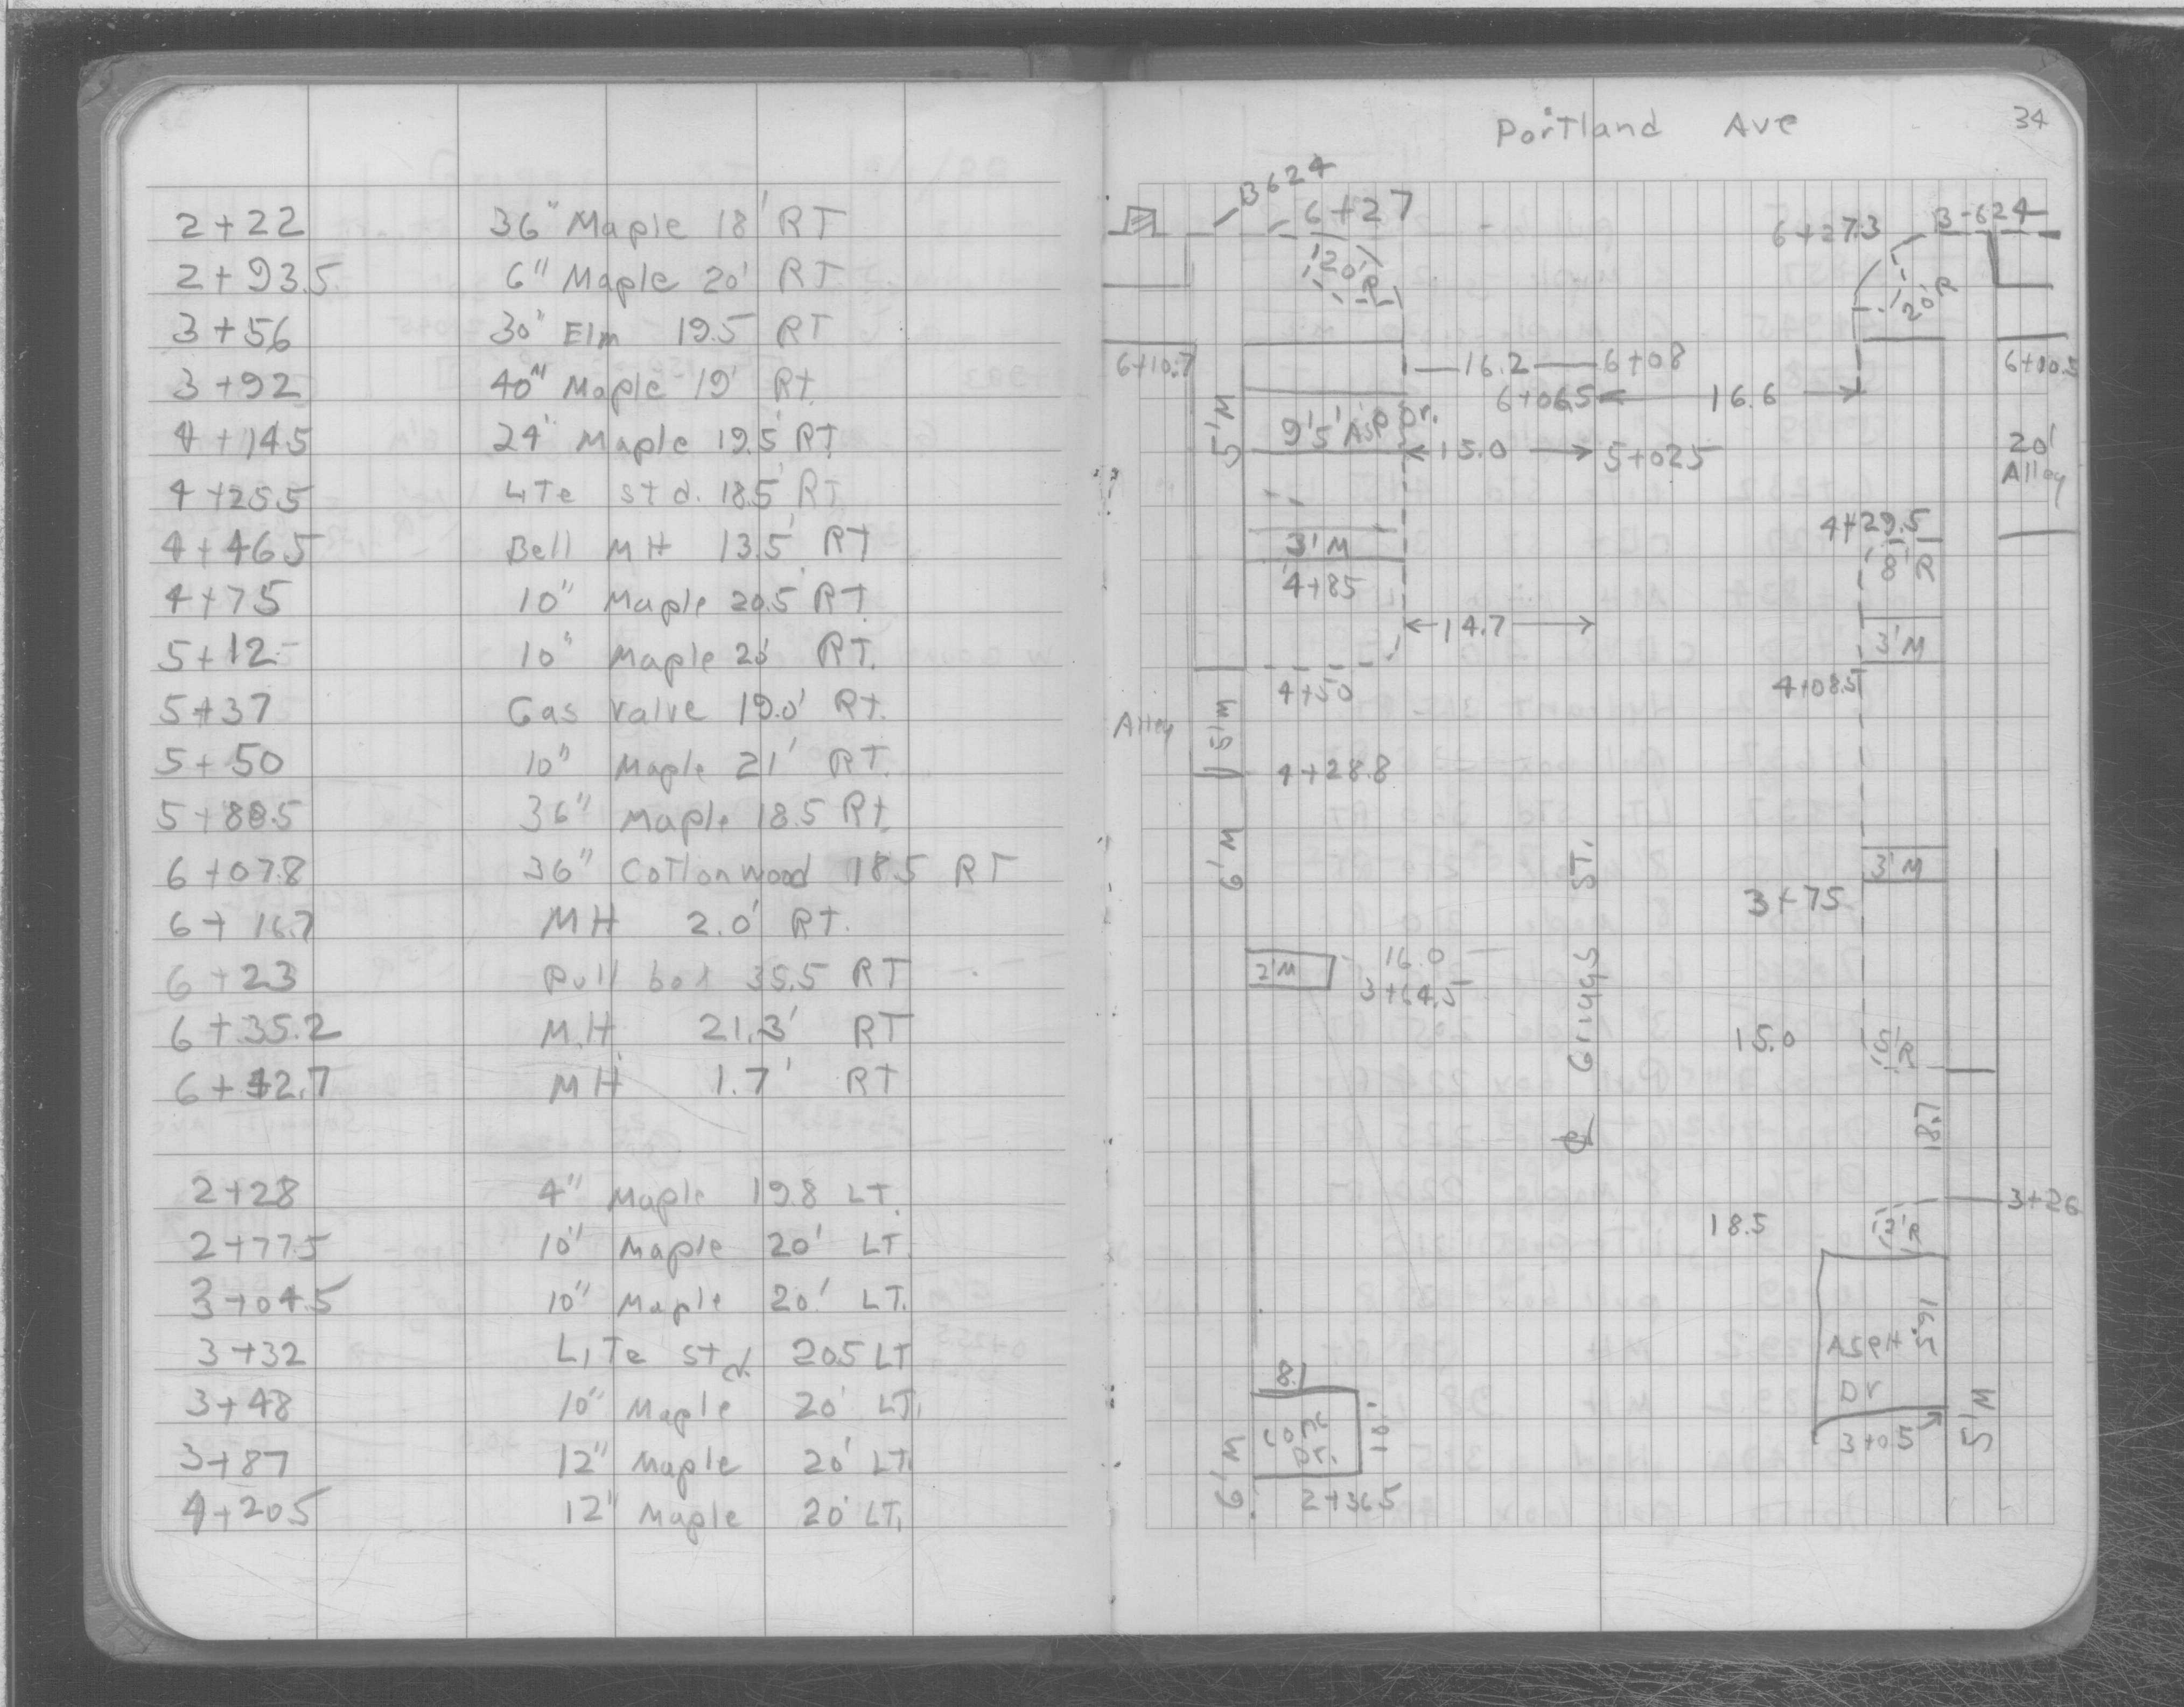 2+22 36" Maple 18' RT
2+93.5 6" Maple 20' RT
3+56 30" Elm 19.5 RT
3+92 40" Maple 19' Rt.
4+14.5 24" Maple 19.5' RT
4+25.5 LTe std. 18.5' RT
4+46.5 Bell MH 13.5' RT
4+75 10" Maple 20.5' RT
5+12 10" Maple 20' RT.
5+37 Gas Valve 19.0' Rt.
5+50 10" Maple 21' RT.
5+88.5 36" Maple 18.5 Rt.
6+07.8 36" Cottonwood 18.5 RT
6+16.7 MH 2.0' RT.
6+23 Pull box 35.5 RT
6+35.2 M.H. 21.3' RT
6+42.7 MH 1.7' RT
2+28 4" Maple 19.8 LT.
2+77.5 10" Maple 20' LT.
3+04.5 10" Maple 20' LT.
3+32 LiTe std. 20.5 LT
3+48 10" Maple 20' LT.
3+87 12" Maple 20' LT.
4+20.5 12" Maple 20' LT.
34
Portland Ave
B624
6+27
20' R
6+27.3
B-624
20' R
6+10.7
16.2 6+08
6+06.5 16.6
6+10.5
5'M
9'5' Asp Dr.
15.0 5+02.5
20' Alley
3'M
4+85
4+29.5
8' R
14.7
3'M
4+50
4+08.5
Alley
5'M
4+28.8
6'M
3'M
3+75
2'M
16.0
3+64.5
℄ Griggs ST.
15.0
5'R
18.7
3+26
18.5
12'R
Asph Dr
16.5
3+05
5'M
8.1
Conc Dr.
10.1
6'M
2+36.5